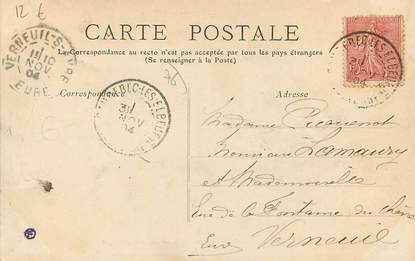 12 6
CARTE POSTALE
La Correspondance au recto n'est pas acceptée par tous les pays étrangers
(Se renseigner à la Poste)
VERNEUIL-S-AVRE
10
NOV.
04
EURE
76
Correspondance
Adresse
CAUDEBEC-LES-ELBEUF
31
04
Madame
Monsieur Lamaury
et Mademoiselle
Rue de la Fontaine du
Eure Verneuil